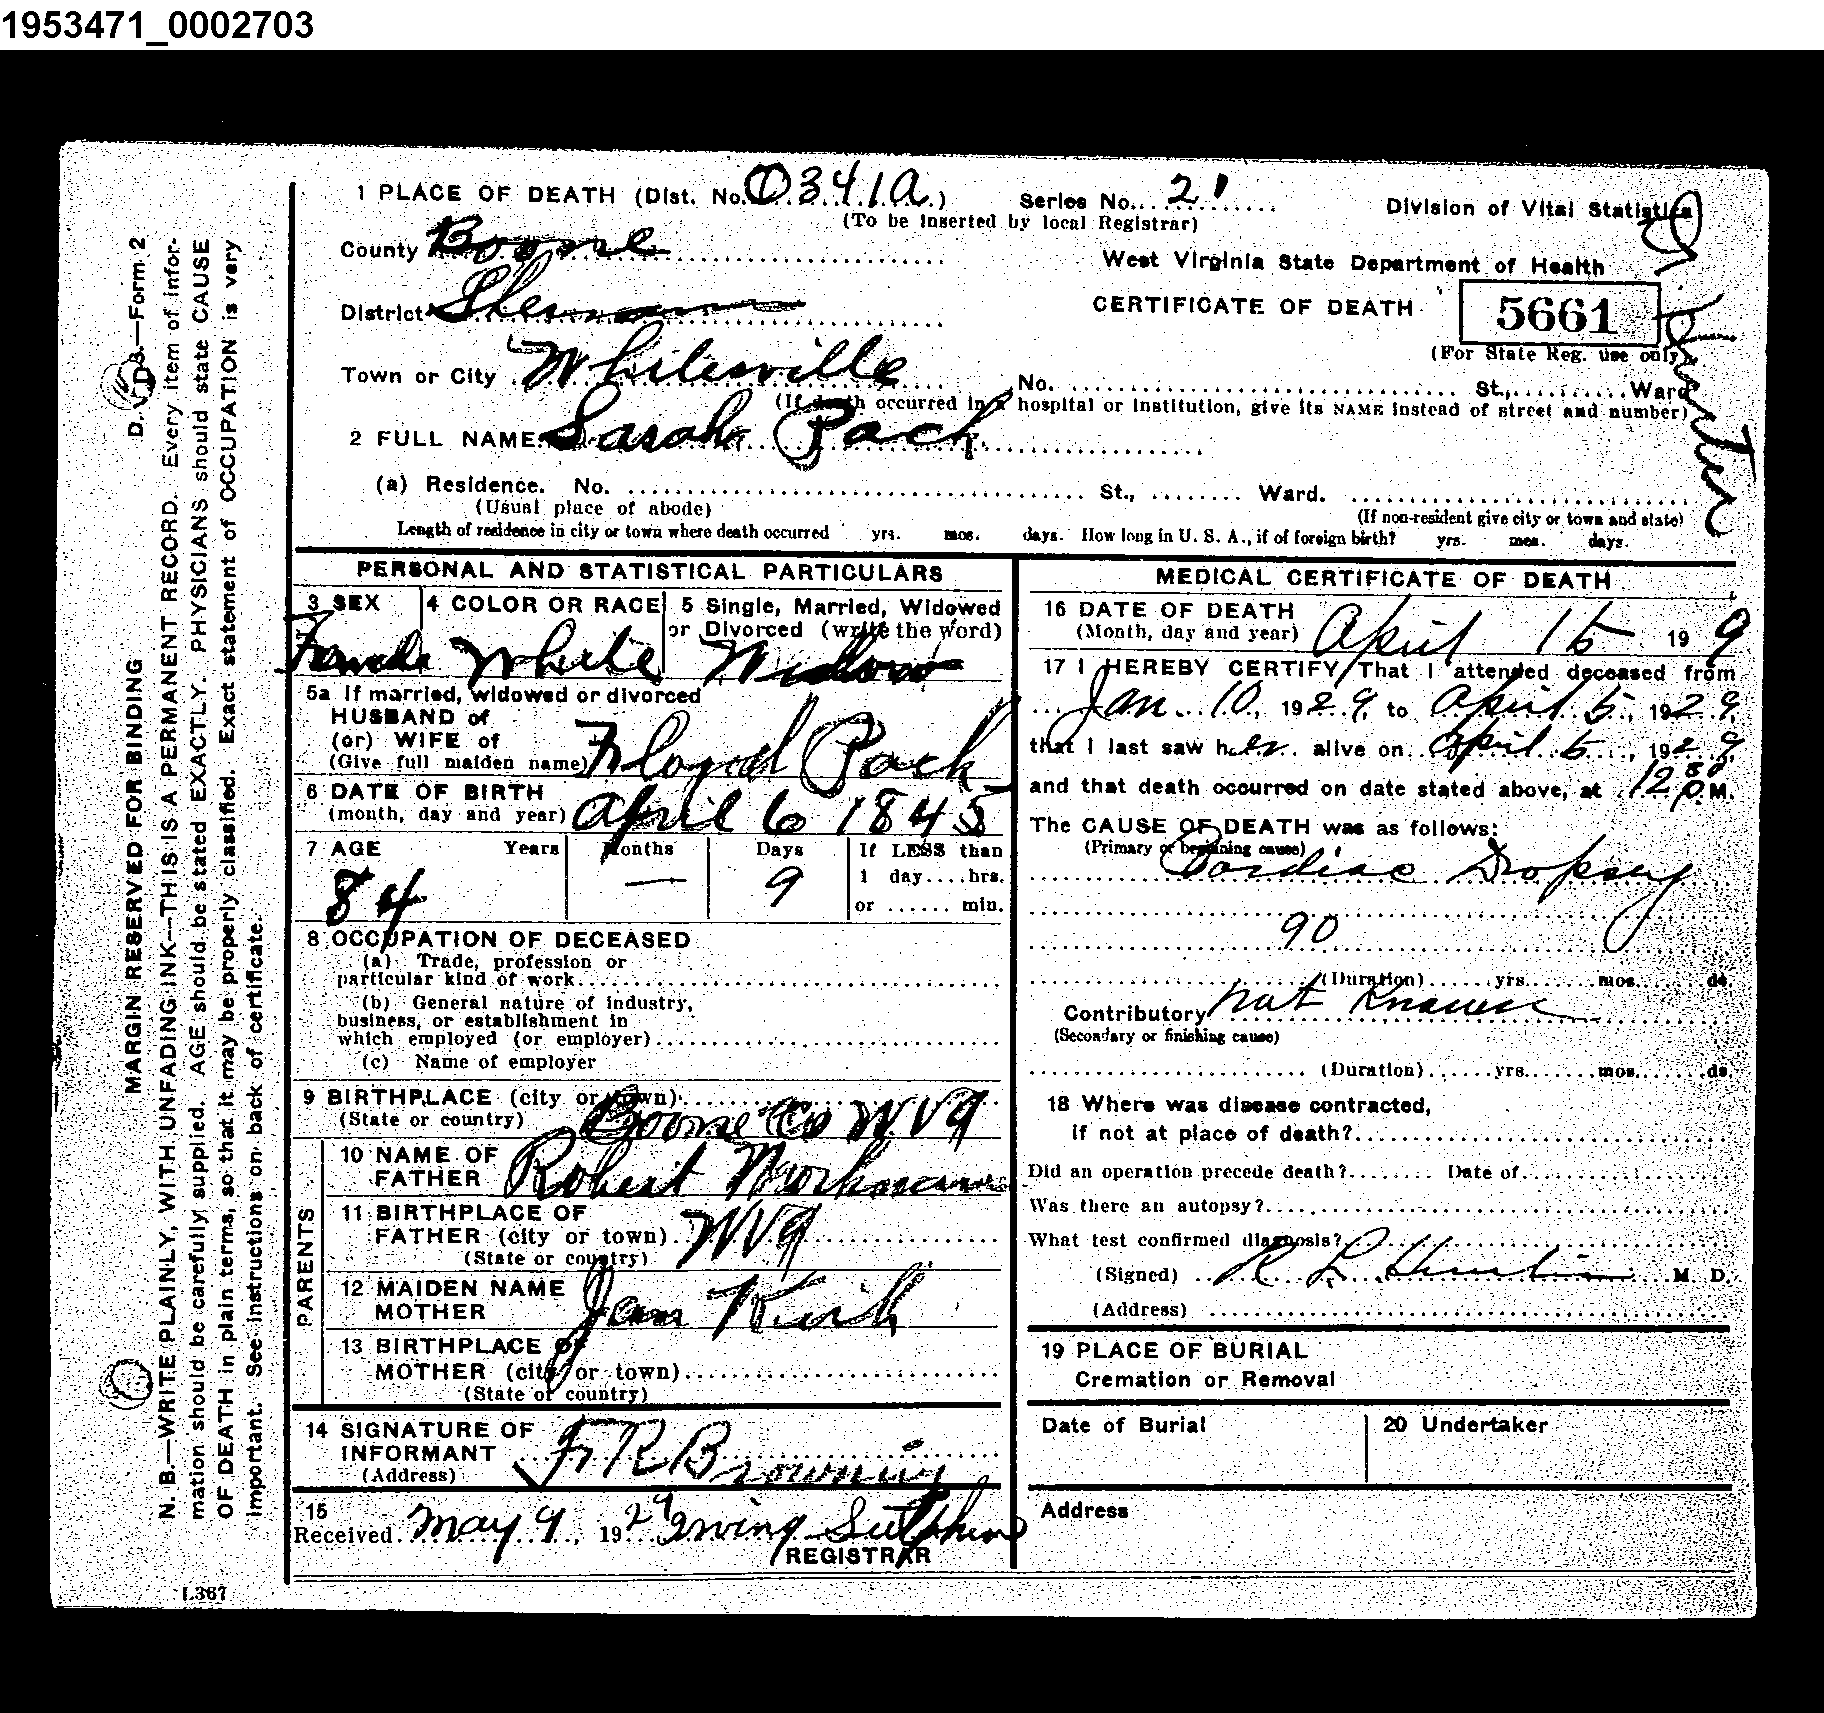 1953471_0002703
1 PLACE OF DEATH (Dist. No. 0341a.) Series No. 21 Division of Vital Statistics
(To be inserted by local Registrar)
County Boone
West Virginia State Department of Health
District Sherman
CERTIFICATE OF DEATH 5661
(For State Reg. use only)
Town or City Whitesville No. St., Ward
(If death occurred in a hospital or institution, give its NAME instead of street and number)
2 FULL NAME Sarah Pack
(a) Residence. No. St., Ward.
(Usual place of abode) (If non-resident give city or town and state)
Length of residence in city or town where death occurred yrs. mos. days. How long in U. S. A., if of foreign birth? yrs. mos. days.
PERSONAL AND STATISTICAL PARTICULARS
3 SEX 4 COLOR OR RACE 5 Single, Married, Widowed
or Divorced (write the word)
Female White Widow
5a If married, widowed or divorced
HUSBAND of
(or) WIFE of
(Give full maiden name) Floyd Pack
6 DATE OF BIRTH
(month, day and year) April 6 1845
7 AGE Years Months Days If LESS than
1 day....hrs.
84 — 9
or ...... min.
8 OCCUPATION OF DECEASED
(a) Trade, profession or
particular kind of work
(b) General nature of industry,
business, or establishment in
which employed (or employer)
(c) Name of employer
9 BIRTHPLACE (city or town)
(State or country) Boone Co W Va
PARENTS
10 NAME OF
FATHER Robert Workman
11 BIRTHPLACE OF
FATHER (city or town) W Va
(State or country)
12 MAIDEN NAME
MOTHER Jan Kirk
13 BIRTHPLACE OF
MOTHER (city or town)
(State or country)
14 SIGNATURE OF
INFORMANT F R Browning
(Address)
15
Received May 9, 1929 Irving Sutphin
REGISTRAR
MEDICAL CERTIFICATE OF DEATH
16 DATE OF DEATH
(Month, day and year) April 15 19 9
17 I HEREBY CERTIFY That I attended deceased from
Jan. 10, 1929, to April 5, 1929,
that I last saw her alive on April 5, 1929,
and that death occurred on date stated above, at 12 30 P.M.
The CAUSE OF DEATH was as follows:
(Primary or beginning cause)
Cardiac Dropsey
90
(Duration) yrs. mos. ds.
Contributory Not Known
(Secondary or finishing cause)
(Duration) yrs. mos. ds.
18 Where was disease contracted,
if not at place of death?
Did an operation precede death? Date of
Was there an autopsy?
What test confirmed diagnosis?
(Signed) R. L. M. D.
(Address)
19 PLACE OF BURIAL
Cremation or Removal
Date of Burial 20 Undertaker
Address
MARGIN RESERVED FOR BINDING D. V. S.—Form 2
N. B.—WRITE PLAINLY, WITH UNFADING INK—THIS IS A PERMANENT RECORD. Every item of infor-
mation should be carefully supplied. AGE should be stated EXACTLY. PHYSICIANS should state CAUSE
OF DEATH in plain terms, so that it may be properly classified. Exact statement of OCCUPATION is very
important. See instructions on back of certificate.
L367